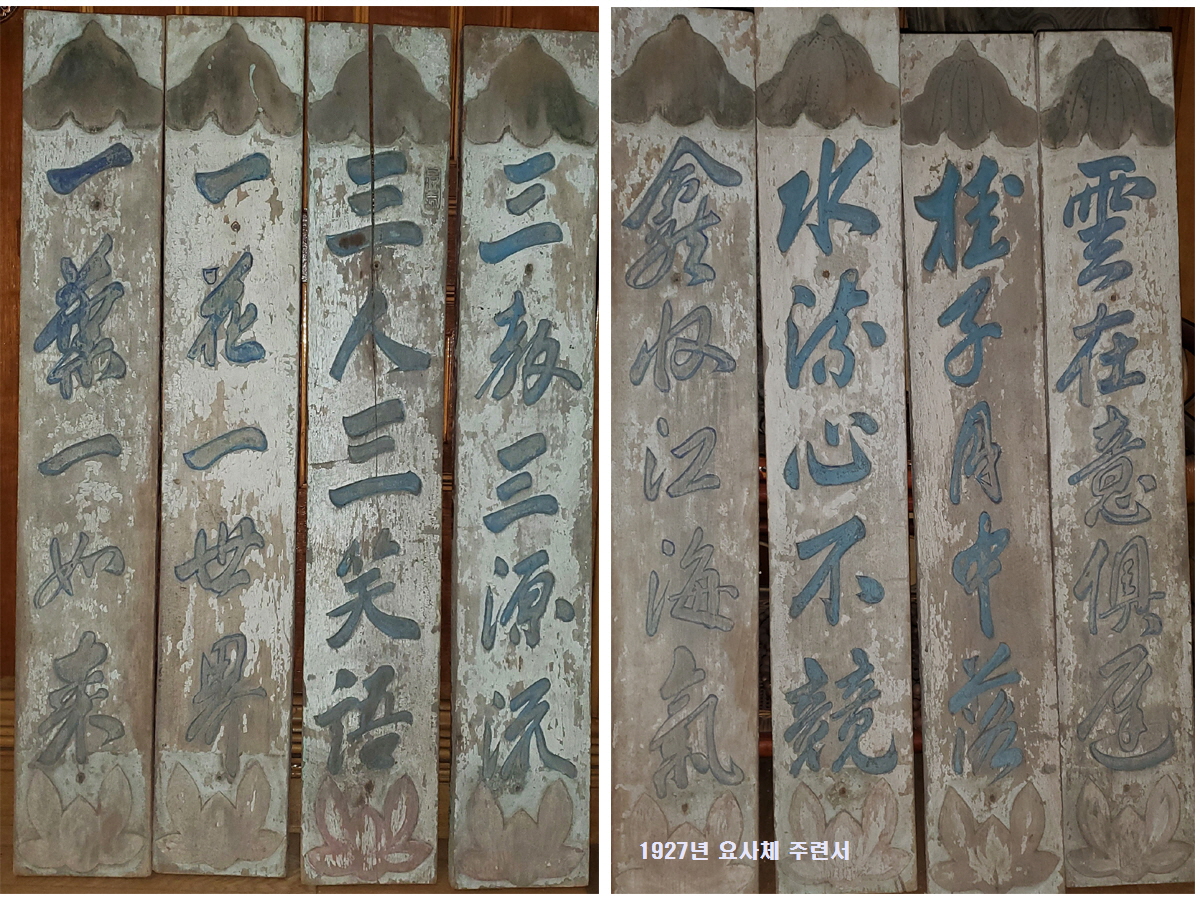 三教三源流
三人三笑語
一花一世界
一葉一如来
雲在意俱遲
桂子月中落
水流心不競
龕收江海氣
1927년 요사체 주련서